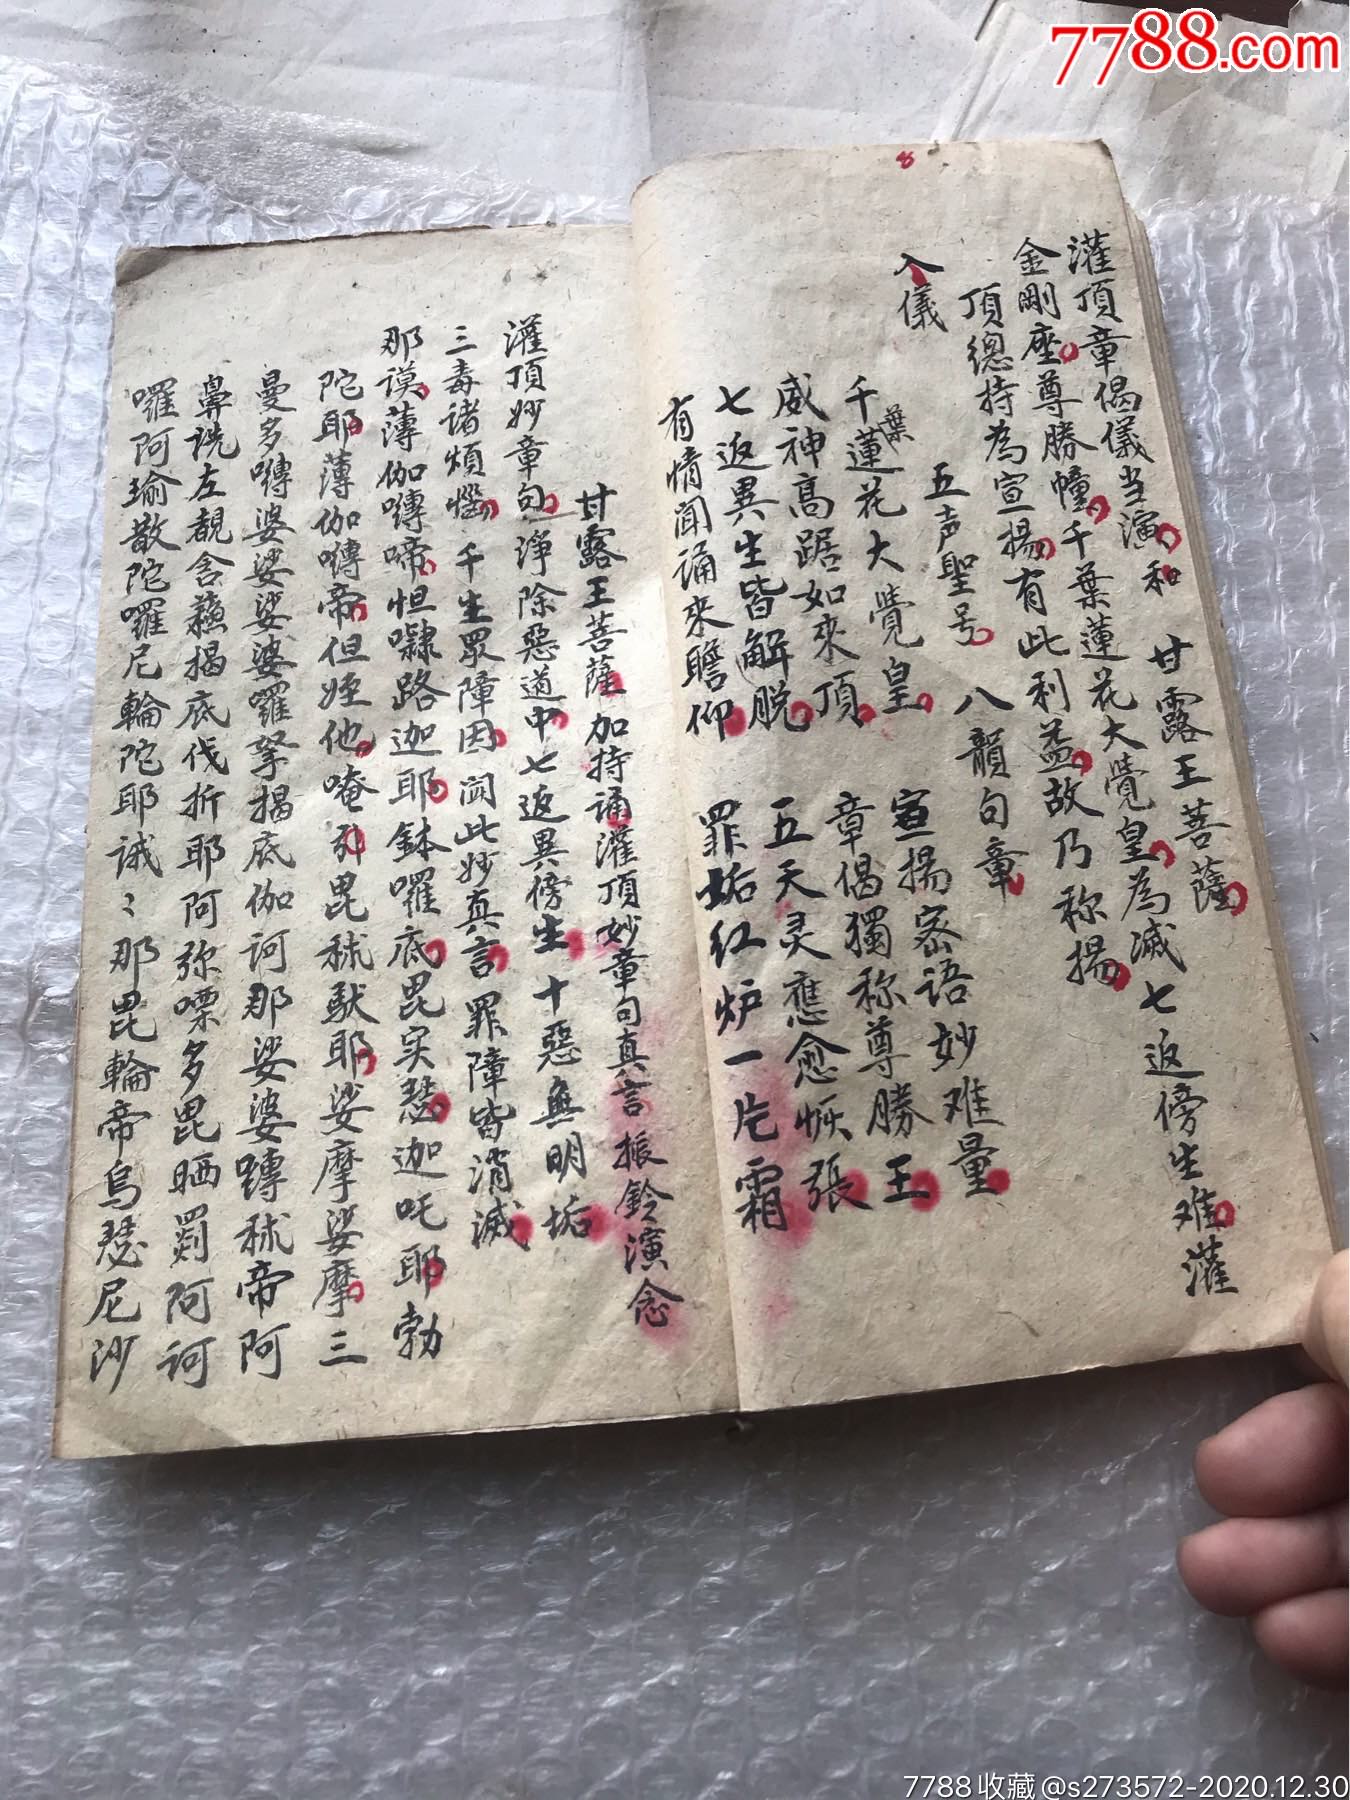 7788.com
8
灌頂章偈儀当演和 甘露王菩薩
金剛座尊勝幢千葉蓮花大覺皇為滅七返傍生难灌
頂總持為宣揚有此利益故乃称揚
入儀 五声聖号 八韻句章
千葉蓮花大覺皇 宣揚密语妙难量
威神高踞如來頂 章偈獨称尊勝王
七返異生皆解脱 五天灵應愈恢張
有情闻誦來瞻仰 罪垢红炉一片霜
甘露王菩薩加持诵灌頂妙章句真言振鈴演念
灌頂妙章句淨除惡道中七返異傍生十惡無明垢
三毒诸煩惱千生眾障因闻此妙真言罪障皆消滅
那谟薄伽嚩啼怛㘑路迦耶鉢囉底毘实瑟迦吒耶勃
陀耶薄伽嚩帝但姪他唵引毘秫馱耶娑摩娑摩三
曼多嚩婆娑娑婆囉拏揭底伽诃那娑婆嚩秫帝阿
鼻诜左覩含蘓揭底伐折耶阿弥㗚多毘晒罽阿诃
囉阿瑜散陀囉尼輪陀耶诫〻那毘輪帝烏瑟尼沙
7788收藏@s273572-2020.12.30